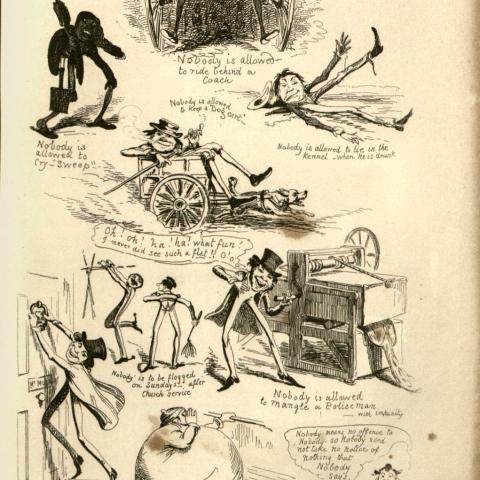 Nobody is allowed
to ride behind a
Coach
Nobody is allowed
to keep a "Dog cart"
Nobody is
allowed to
Cry "Sweep"
Nobody is allowed to lie in the
kennel - when he is drunk
Oh! oh! ha! ha! what fun!
I never did see such a flat!! O! o!
Mr M
Nobody is to be flogged
on Sundays - after
Church Service
Nobody is allowed
to mangle a Policeman
— with impunity
Nobody means no offence to
Nobody. so Nobody need
not take no notice of
nothing that
Nobody
says.